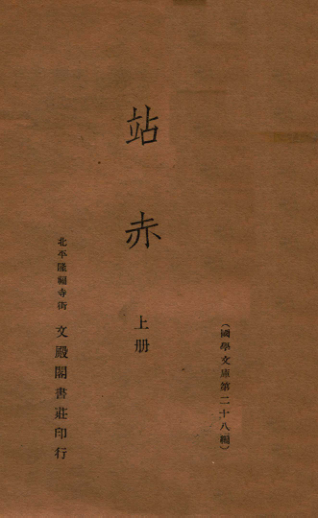 (國學文庫第二十八編)
站赤
上册
北平隆福寺街 文殿閣書莊印行